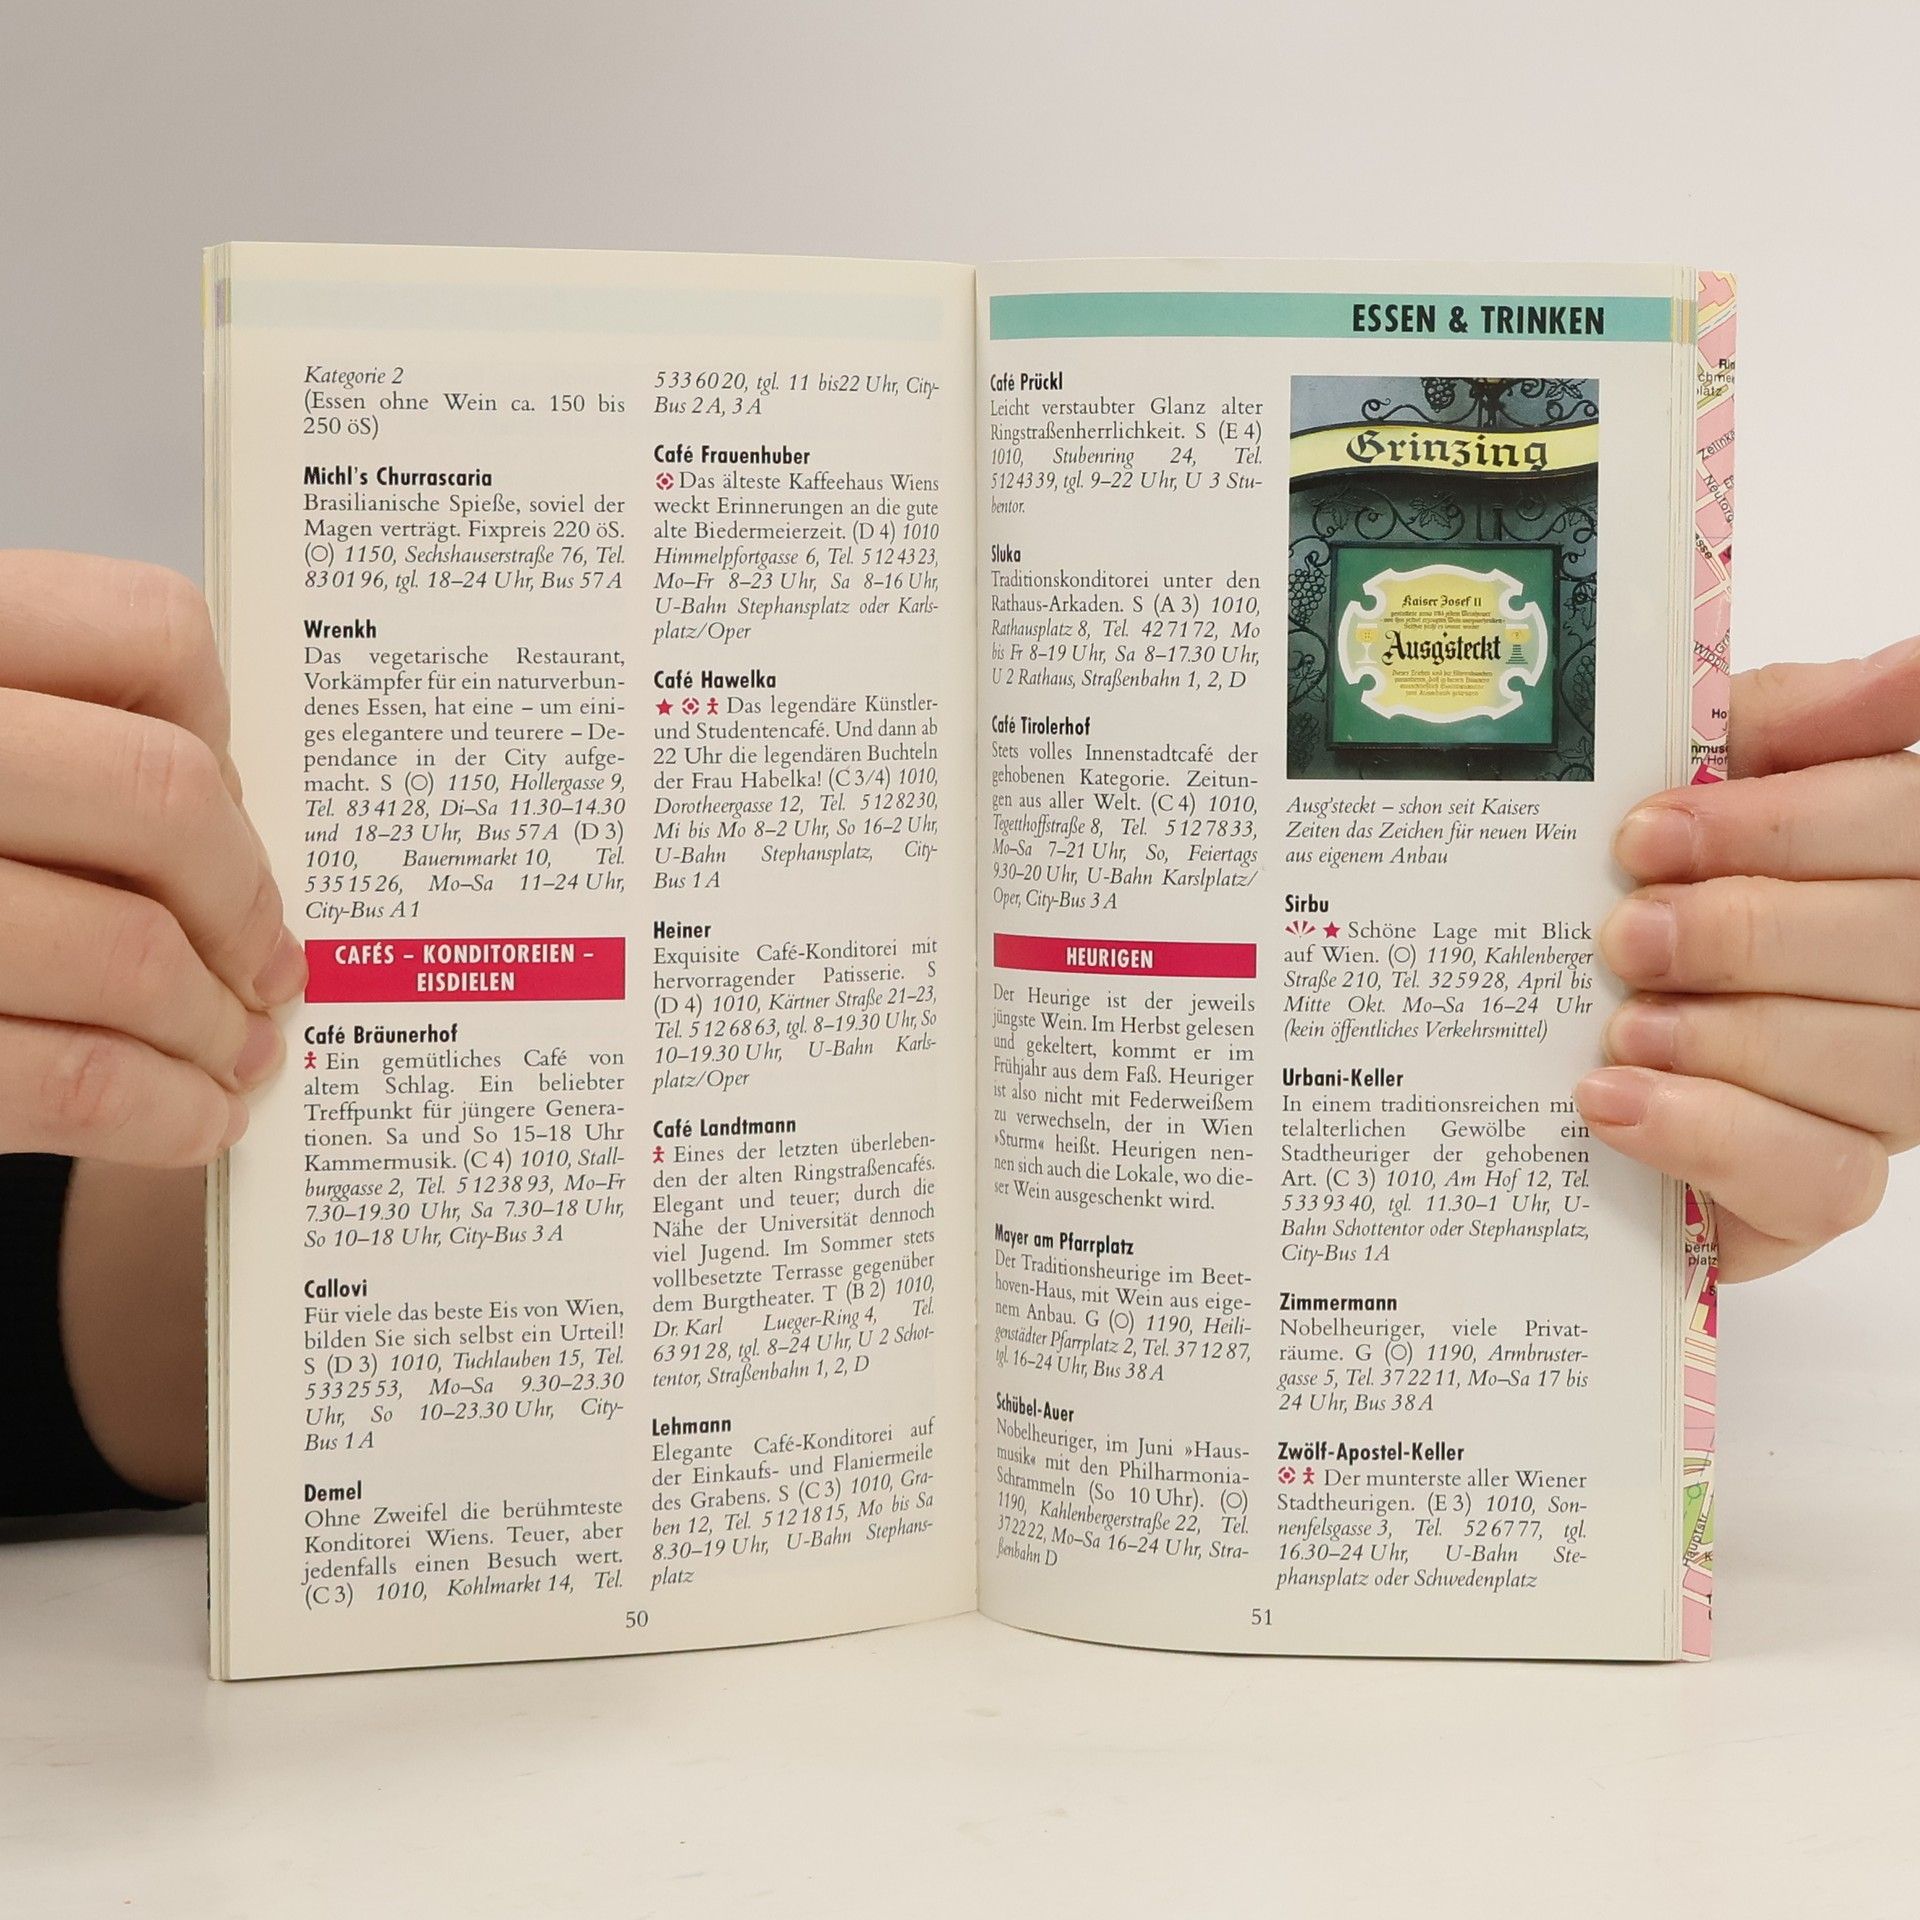 Kategorie 2
(Essen ohne Wein ca. 150 bis
250 öS)
Michl's Churrascaria
Brasilianische Spieße, soviel der
Magen verträgt. Fixpreis 220 öS.
(O) 1150, Sechshauserstraße 76, Tel.
830196, tgl. 18–24 Uhr, Bus 57A
Wrenkh
Das vegetarische Restaurant,
Vorkämpfer für ein naturverbun-
denes Essen, hat eine – um eini-
ges elegantere und teurere – De-
pendance in der City aufge-
macht. S (O) 1150, Hollergasse 9,
Tel. 834128, Di–Sa 11.30–14.30
und 18–23 Uhr, Bus 57A (D 3)
1010, Bauernmarkt 10, Tel.
5351526, Mo–Sa 11–24 Uhr,
City-Bus A1
CAFÉS – KONDITOREIEN –
EISDIELEN
Café Bräunerhof
Ein gemütliches Café von
altem Schlag. Ein beliebter
Treffpunkt für jüngere Genera-
tionen. Sa und So 15–18 Uhr
Kammermusik. (C 4) 1010, Stall-
burggasse 2, Tel. 5123893, Mo–Fr
7.30–19.30 Uhr, Sa 7.30–18 Uhr,
So 10–18 Uhr, City-Bus 3A
Callovi
Für viele das beste Eis von Wien,
bilden Sie sich selbst ein Urteil!
S (D 3) 1010, Tuchlauben 15, Tel.
5332553, Mo–Sa 9.30–23.30
Uhr, So 10–23.30 Uhr, City-
Bus 1A
Demel
Ohne Zweifel die berühmteste
Konditorei Wiens. Teuer, aber
jedenfalls einen Besuch wert.
(C 3) 1010, Kohlmarkt 14, Tel.
5336020, tgl. 11 bis22 Uhr, City-
Bus 2A, 3A
Café Frauenhuber
Das älteste Kaffeehaus Wiens
weckt Erinnerungen an die gute
alte Biedermeierzeit. (D 4) 1010
Himmelpfortgasse 6, Tel. 5124323,
Mo–Fr 8–23 Uhr, Sa 8–16 Uhr,
U-Bahn Stephansplatz oder Karls-
platz/Oper
Café Hawelka
Das legendäre Künstler-
und Studentencafé. Und dann ab
22 Uhr die legendären Buchteln
der Frau Habelka! (C 3/4) 1010,
Dorotheergasse 12, Tel. 5128230,
Mi bis Mo 8–2 Uhr, So 16–2 Uhr,
U-Bahn Stephansplatz, City-
Bus 1A
Heiner
Exquisite Café-Konditorei mit
hervorragender Patisserie. S
(D 4) 1010, Kärtner Straße 21–23,
Tel. 5126863, tgl. 8–19.30 Uhr, So
10–19.30 Uhr, U-Bahn Karls-
platz/Oper
Café Landtmann
Eines der letzten überleben-
den der alten Ringstraßencafés.
Elegant und teuer; durch die
Nähe der Universität dennoch
viel Jugend. Im Sommer stets
vollbesetzte Terrasse gegenüber
dem Burgtheater. T (B 2) 1010,
Dr. Karl Lueger-Ring 4, Tel.
639128, tgl. 8–24 Uhr, U 2 Schot-
tentor, Straßenbahn 1, 2, D
Lehmann
Elegante Café-Konditorei auf
der Einkaufs- und Flaniermeile
des Grabens. S (C 3) 1010, Gra-
ben 12, Tel. 5121815, Mo bis Sa
8.30–19 Uhr, U-Bahn Stephans-
platz
50
ESSEN & TRINKEN
Café Prückl
Leicht verstaubter Glanz alter
Ringstraßenherrlichkeit. S (E 4)
1010, Stubenring 24, Tel.
5124339, tgl. 9–22 Uhr, U 3 Stu-
bentor.
Sluka
Traditionskonditorei unter den
Rathaus-Arkaden. S (A 3) 1010,
Rathausplatz 8, Tel. 427172, Mo
bis Fr 8–19 Uhr, Sa 8–17.30 Uhr,
U 2 Rathaus, Straßenbahn 1, 2, D
Café Tirolerhof
Stets volles Innenstadtcafé der
gehobenen Kategorie. Zeitun-
gen aus aller Welt. (C 4) 1010,
Tegetthoffstraße 8, Tel. 5127833,
Mo–Sa 7–21 Uhr, So, Feiertags
9.30–20 Uhr, U-Bahn Karslplatz/
Oper, City-Bus 3A
HEURIGEN
Der Heurige ist der jeweils
jüngste Wein. Im Herbst gelesen
und gekeltert, kommt er im
Frühjahr aus dem Faß. Heuriger
ist also nicht mit Federweißem
zu verwechseln, der in Wien
»Sturm« heißt. Heurigen nen-
nen sich auch die Lokale, wo die-
ser Wein ausgeschenkt wird.
Mayer am Pfarrplatz
Der Traditionsheurige im Beet-
hoven-Haus, mit Wein aus eige-
nem Anbau. G (O) 1190, Heili-
genstädter Pfarrplatz 2, Tel. 371287,
tgl. 16–24 Uhr, Bus 38A
Schübel-Auer
Nobelheuriger, im Juni »Haus-
musik« mit den Philharmonia-
Schrammeln (So 10 Uhr). (O)
1190, Kahlenbergerstraße 22, Tel.
372222, Mo–Sa 16–24 Uhr, Stra-
ßenbahn D
Grinzing
Kaiser Josef II
Ausg'steckt
Ausg'steckt – schon seit Kaisers
Zeiten das Zeichen für neuen Wein
aus eigenem Anbau
Sirbu
Schöne Lage mit Blick
auf Wien. (O) 1190, Kahlenberger
Straße 210, Tel. 325928, April bis
Mitte Okt. Mo–Sa 16–24 Uhr
(kein öffentliches Verkehrsmittel)
Urbani-Keller
In einem traditionsreichen mi
telalterlichen Gewölbe ein
Stadtheuriger der gehobenen
Art. (C 3) 1010, Am Hof 12, Tel.
5339340, tgl. 11.30–1 Uhr, U-
Bahn Schottentor oder Stephansplatz,
City-Bus 1A
Zimmermann
Nobelheuriger, viele Privat-
räume. G (O) 1190, Armbruster-
gasse 5, Tel. 372211, Mo–Sa 17 bis
24 Uhr, Bus 38A
Zwölf-Apostel-Keller
Der munterste aller Wiener
Stadtheurigen. (E 3) 1010, Son-
nenfelsgasse 3, Tel. 526777, tgl.
16.30–24 Uhr, U-Bahn Ste-
phansplatz oder Schwedenplatz
51